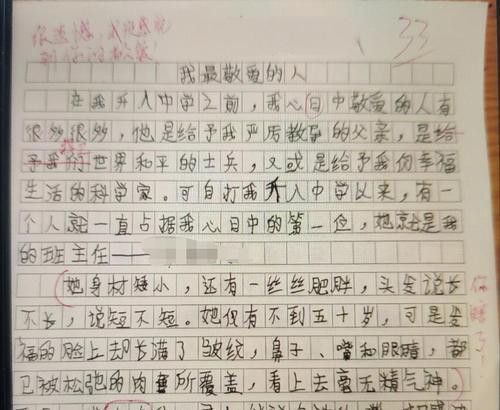 很遗憾，我没感觉
到你的敬爱！
33
我最敬爱的人
在我升入中学之前，我心目中敬爱的人有
很多很多，他是给予我严厉教导的父亲，是给
予我们世界和平的士兵，又或是给予我们幸福
生活的科学家。可自打我升入中学以来，有一
个人就一直占据我心目中的第一位，她就是我
的班主任——
她身材矮小，还有一丝丝肥胖，头发说长
不长，说短不短。她仅有不到五十岁，可是发
福的脸上却长满了皱纹，鼻子、嘴和眼睛，都
已被松弛的肉垂所覆盖，看上去毫无精气神。
你
瞎了！